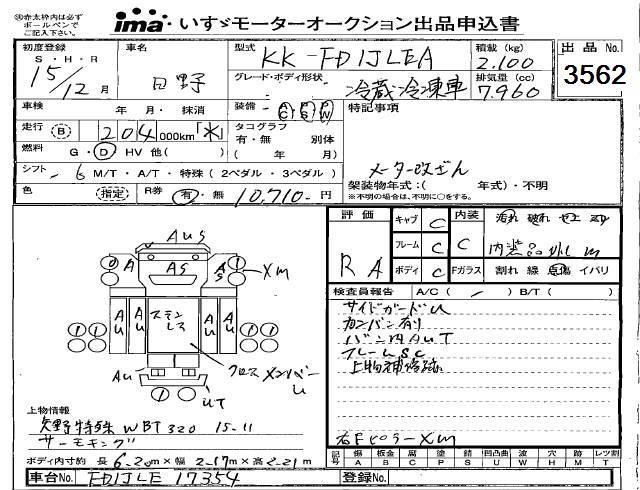 ※赤太枠内は必ず
ボールペンで
ご記入下さい。
ima いすゞモーターオークション出品申込書
初度登録 S・H・R 15/12月
車名 日野
型式 KK-FD1JLEA
積載 (kg) 2.100
出品 No. 3562
グレード・ボディ形状 冷蔵冷凍車
排気量 (cc) 7.960
車検 年 月・抹消
装備 AC PS PW
特記事項
走行 B 204 000km
タコグラフ 有・無 別体 ( 年 月)
燃料 G・D・HV 他( )
メーター改ざん
シフト 6 M/T・A/T・特殊 (2ペダル・3ペダル)
架装物年式:( 年式)・不明
※不明の場合は、不明に○をする。
色 (指定) R券 有・無 10,710-円
評価 R A
キャブ C
内装 C
汚れ 破れ
フレーム C
内装品外し m
ボディ C
Fガラス 割れ 線 点傷 イバリ
検査員報告 A/C ( - )・B/T ( )
サイドガードU
カンバン有り
バン内AUT
フレームSC
上物補修跡
右FピラーXm
AUS
A AS AS Xm
AU AU ステンレス AU AU
1 1 1 1
AU クロスメンバーU
UT
上物情報
矢野特殊 WBT320 15-11
サーモキング
ボディ内寸約 長 6.20m × 幅 2.17m × 高 2.21m
記号 傷 A 板金 B 腐 C 塗 P 錆 S 凹凸曲 U 波 W 穴 H 跡 M レツ割 T
車台No. FD1JLE 17354
登録No.